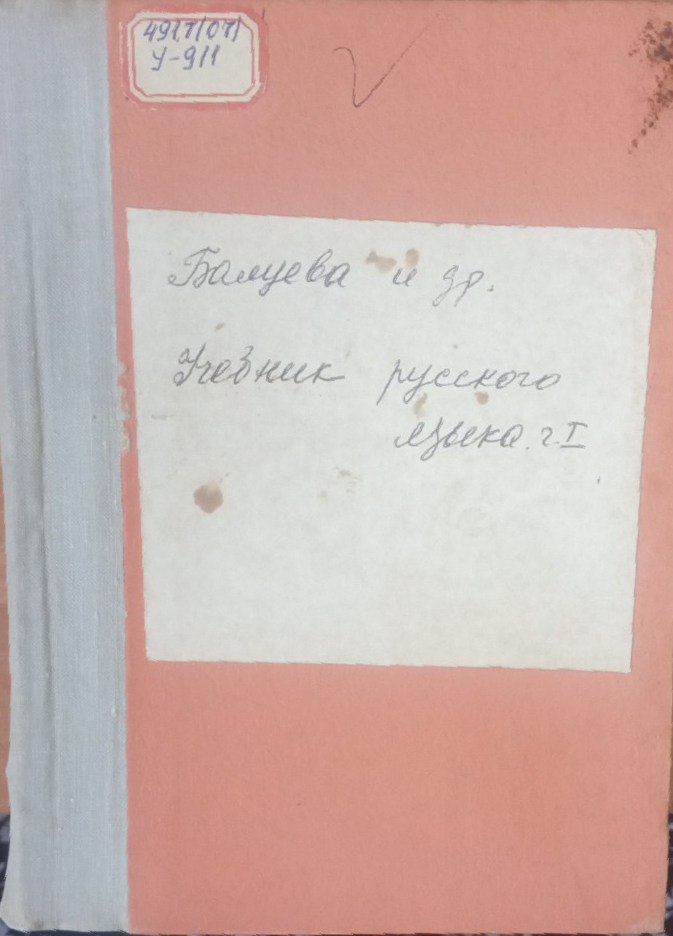 491,7(07)
У-911
Балуева и др.
Учебник русского
языка. ч. I